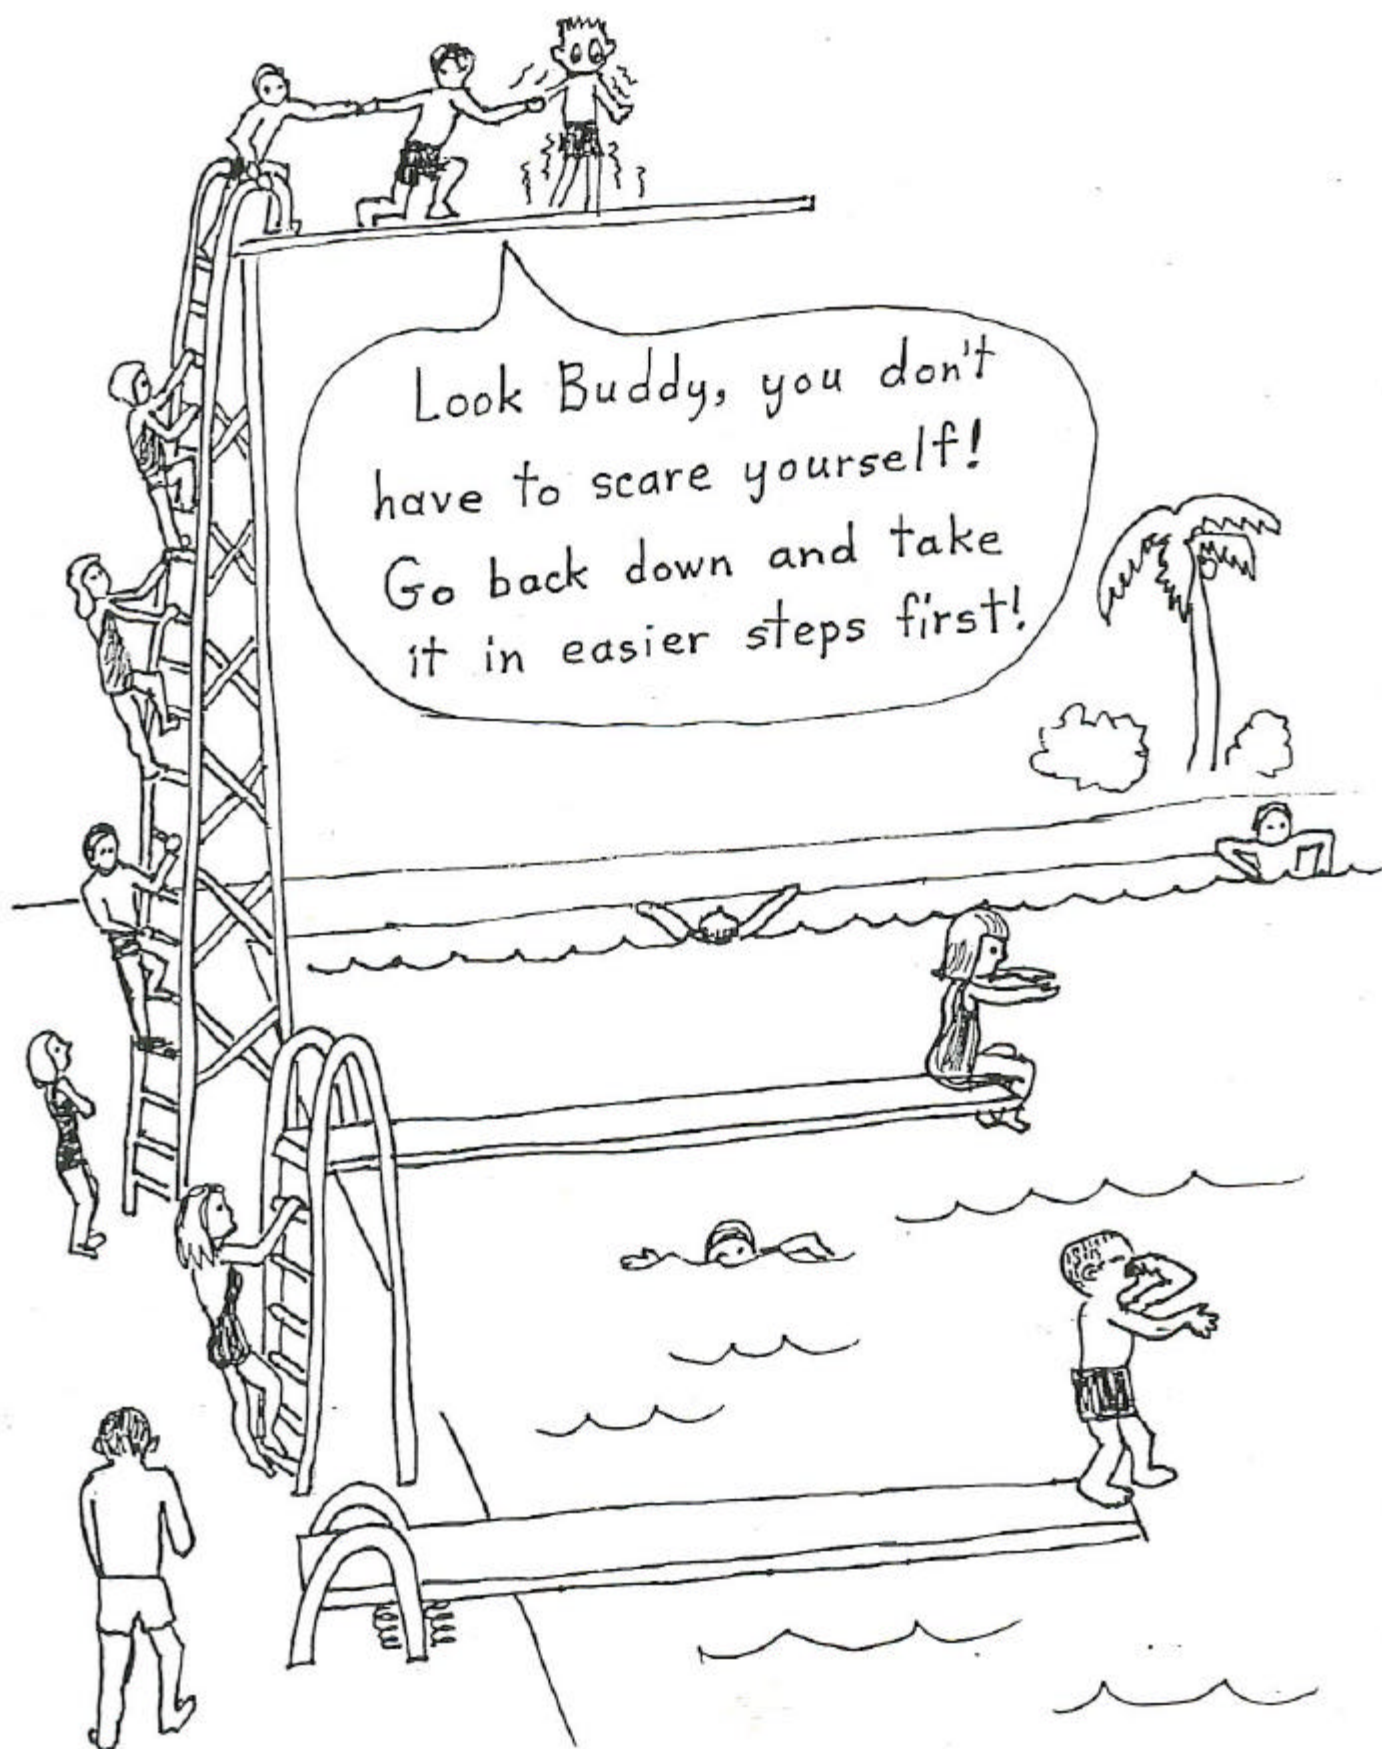 Look Buddy, you don't
have to scare yourself!
Go back down and take
it in easier steps first!